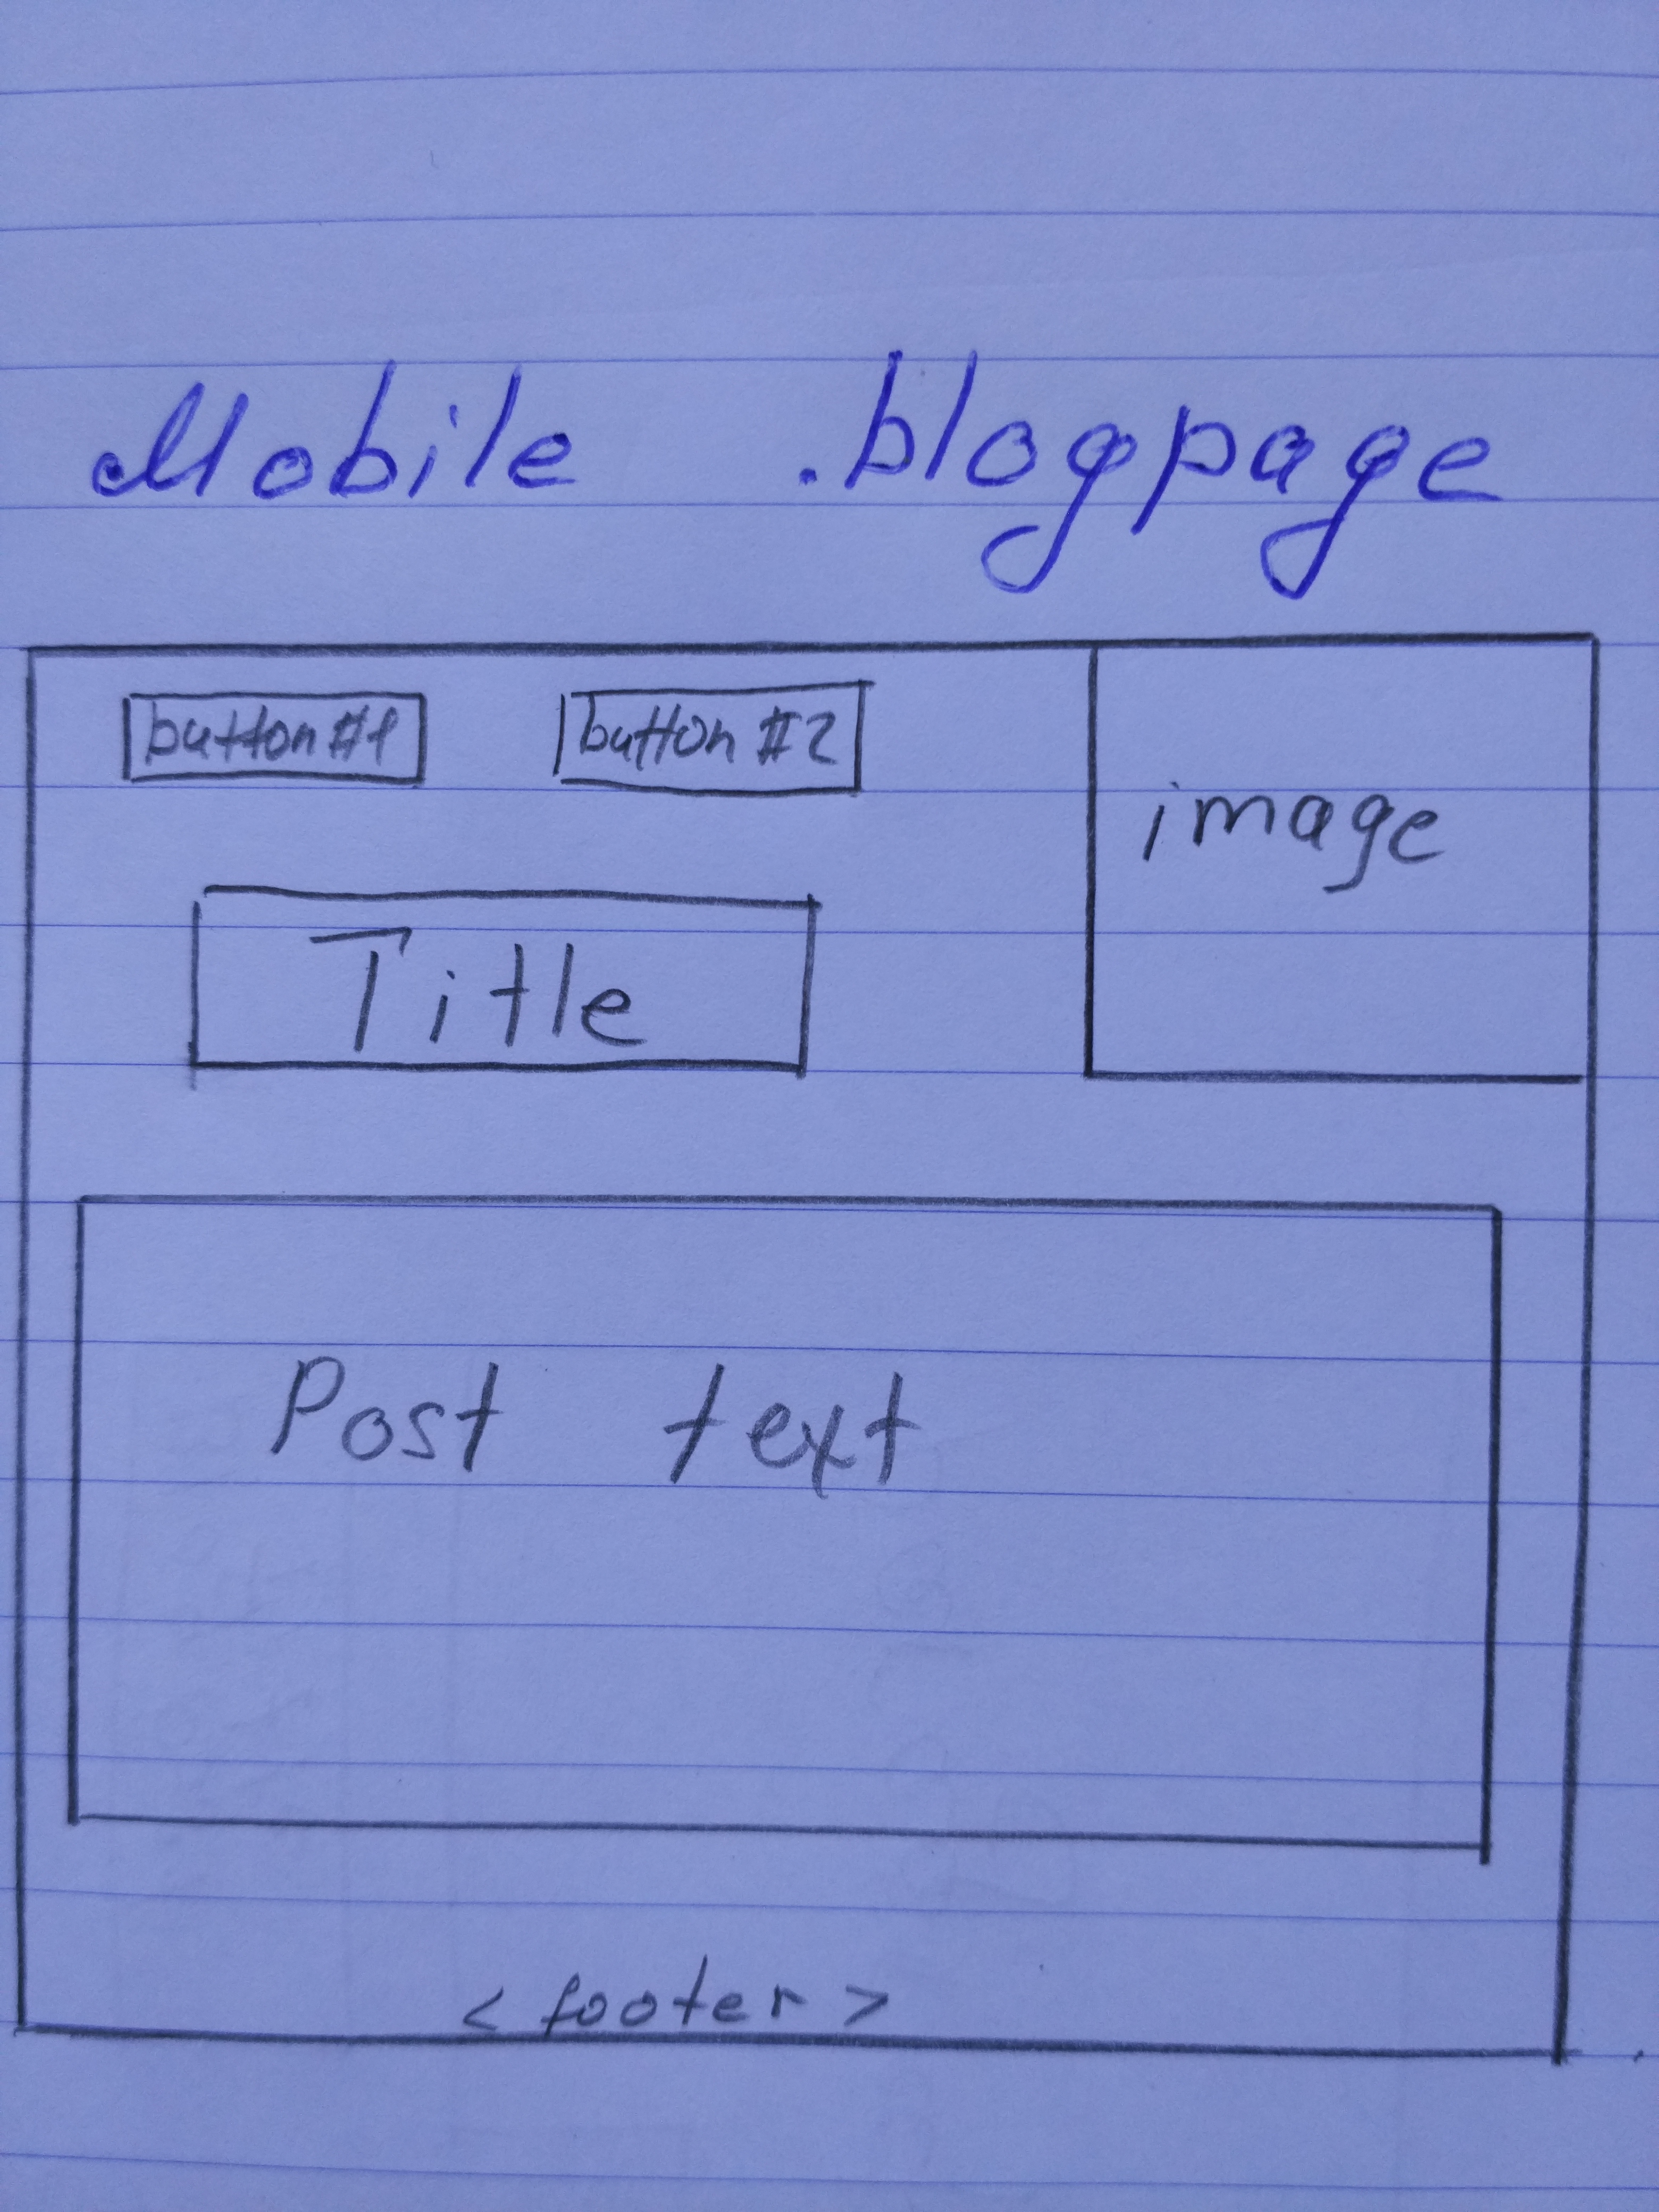 Mobile .blogpage
button #1 button #2
image
Title
Post text
< footer >